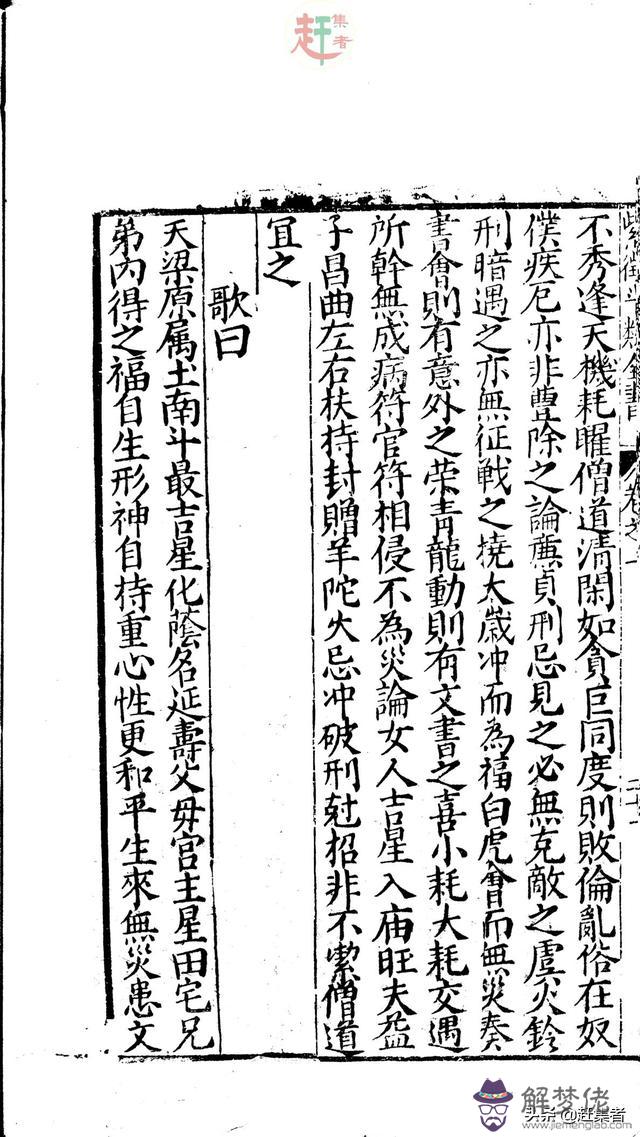 赶集者
不秀逢天機耗曜僧道清閑如貪巨同度則敗倫亂俗在奴
僕疾厄亦非豊除之論亷貞刑忌見之必無克敵之虞火鈴
刑暗遇之亦無征戰之撓太歲冲而為福白虎會而無災奏
書會則有意外之荣青龍動則有文書之喜小耗大耗交遇
所幹無成病符官符相侵不為災論女人吉星入庙旺夫益
子昌曲左右扶持封贈羊陀火忌冲破刑尅招非不潔僧道
宜之
歌曰
天梁原属土南斗最吉星化蔭名延壽父母宮主星田宅兄
弟内得之福自生形神自持重心性更和平生來無災患文
解梦佬
www.jiemenglao.com
头条@赶集者